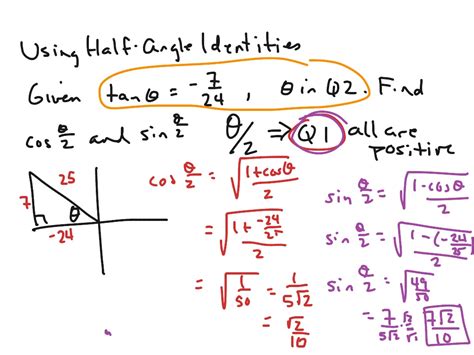 Using Half-Angle Identities
Given tanθ = -7/24, θ in Q2. Find
cos θ/2 and sin θ/2 θ/2 ⇒ Q1 all are
positive
25
7
θ
-24
cos θ/2 = √((1+cosθ)/2)
= √((1+ -24/25)/2)
= √(1/50) = 1/(5√2)
= √2/10
sin θ/2 = √((1-cosθ)/2)
sin θ/2 = √((1-(-24/25))/2)
sin θ/2 = √(49/50)
= 7/(5√2) · √2/√2 7√2/10